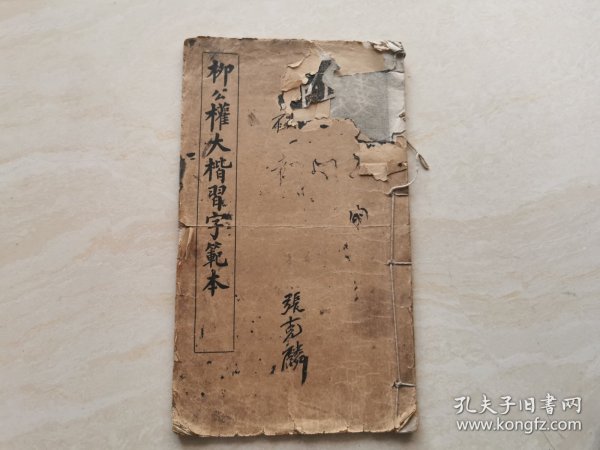 柳公權大楷習字範本
張克麟
孔夫子旧书网
www.kongfz.com